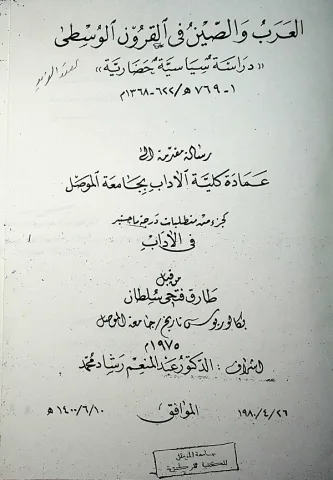 العَرَبُ وَالصِّيْنُ فى القُرُوْنِ الوُسْطَى
«دِرَاسَة سِيَاسِيَّة حَضَارِيَّة»
١-٧٦٩هـ/٦٢٢-١٣٦٨م
رسالة مقدمة الى
عمَادَة كليَّة الآدابِ بِجَامعَة المَوصْل
كجزء من متطلبات درجة ماجستير
في الآدَابْ
من قِبَل
طارق فتحي سُلطان
بكالوريوس تاريخ/جامعة الموصل
١٩٧٥م
اشراف: الدكتور عَبد المنعم رشاد محمّد
١٩٨٠/٤/٢٦ الموافق ١٤٠٠/٦/١٠ هـ